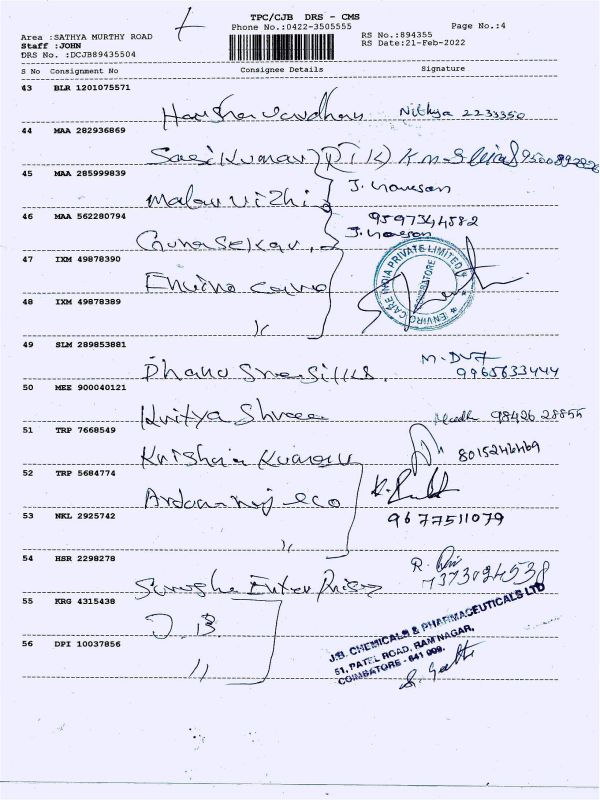 TPC/CJB DRS - CMS
Phone No.:0422-3505555
Page No.:4
Area :SATHYA MURTHY ROAD
RS No.:894355
Staff :JOHN
RS Date:21-Feb-2022
DRS No. :DCJB89435504
S No Consignment No Consignee Details Signature
43 BLR 1201075571
Harsha vardhan Nithya 2233350
44 MAA 282936869
Sasi Kumar
45 MAA 285999839
Malar vizhi
46 MAA 562280794
9597344582
Gunasekar
47 IXM 49878390
ENVIRO CARE INDIA PRIVATE LIMITED
COIMBATORE
Enviro care
48 IXM 49878389
"
49 SLM 289853881
Dhanu
9965633444
50 MEE 900040121
98426 28855
51 TRP 7668549
Krishna Kumar 8015246469
52 TRP 5684774
eco
53 NKL 2925742
9677511079
"
54 HSR 2298278
R.
7373024538
Enterprises
55 KRG 4315438
J.B
J.B. CHEMICALS & PHARMACEUTICALS LTD
51, PATEL ROAD, RAM NAGAR,
COIMBATORE - 641 009.
56 DPI 10037856
"